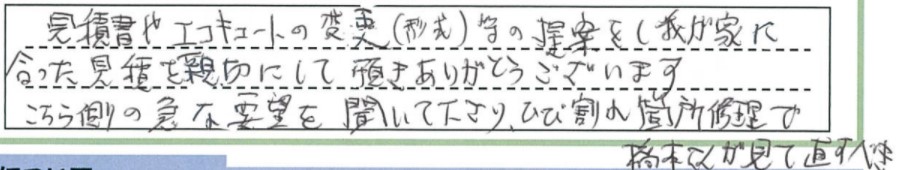 見積書やエコキュートの変更(形式)等の提案をし我が家に
合った見積を親切にして頂きありがとうございます
こちら側の急な要望を聞いて下さり、ひび割れ箇所修理で
橋本さんが見て直すべき